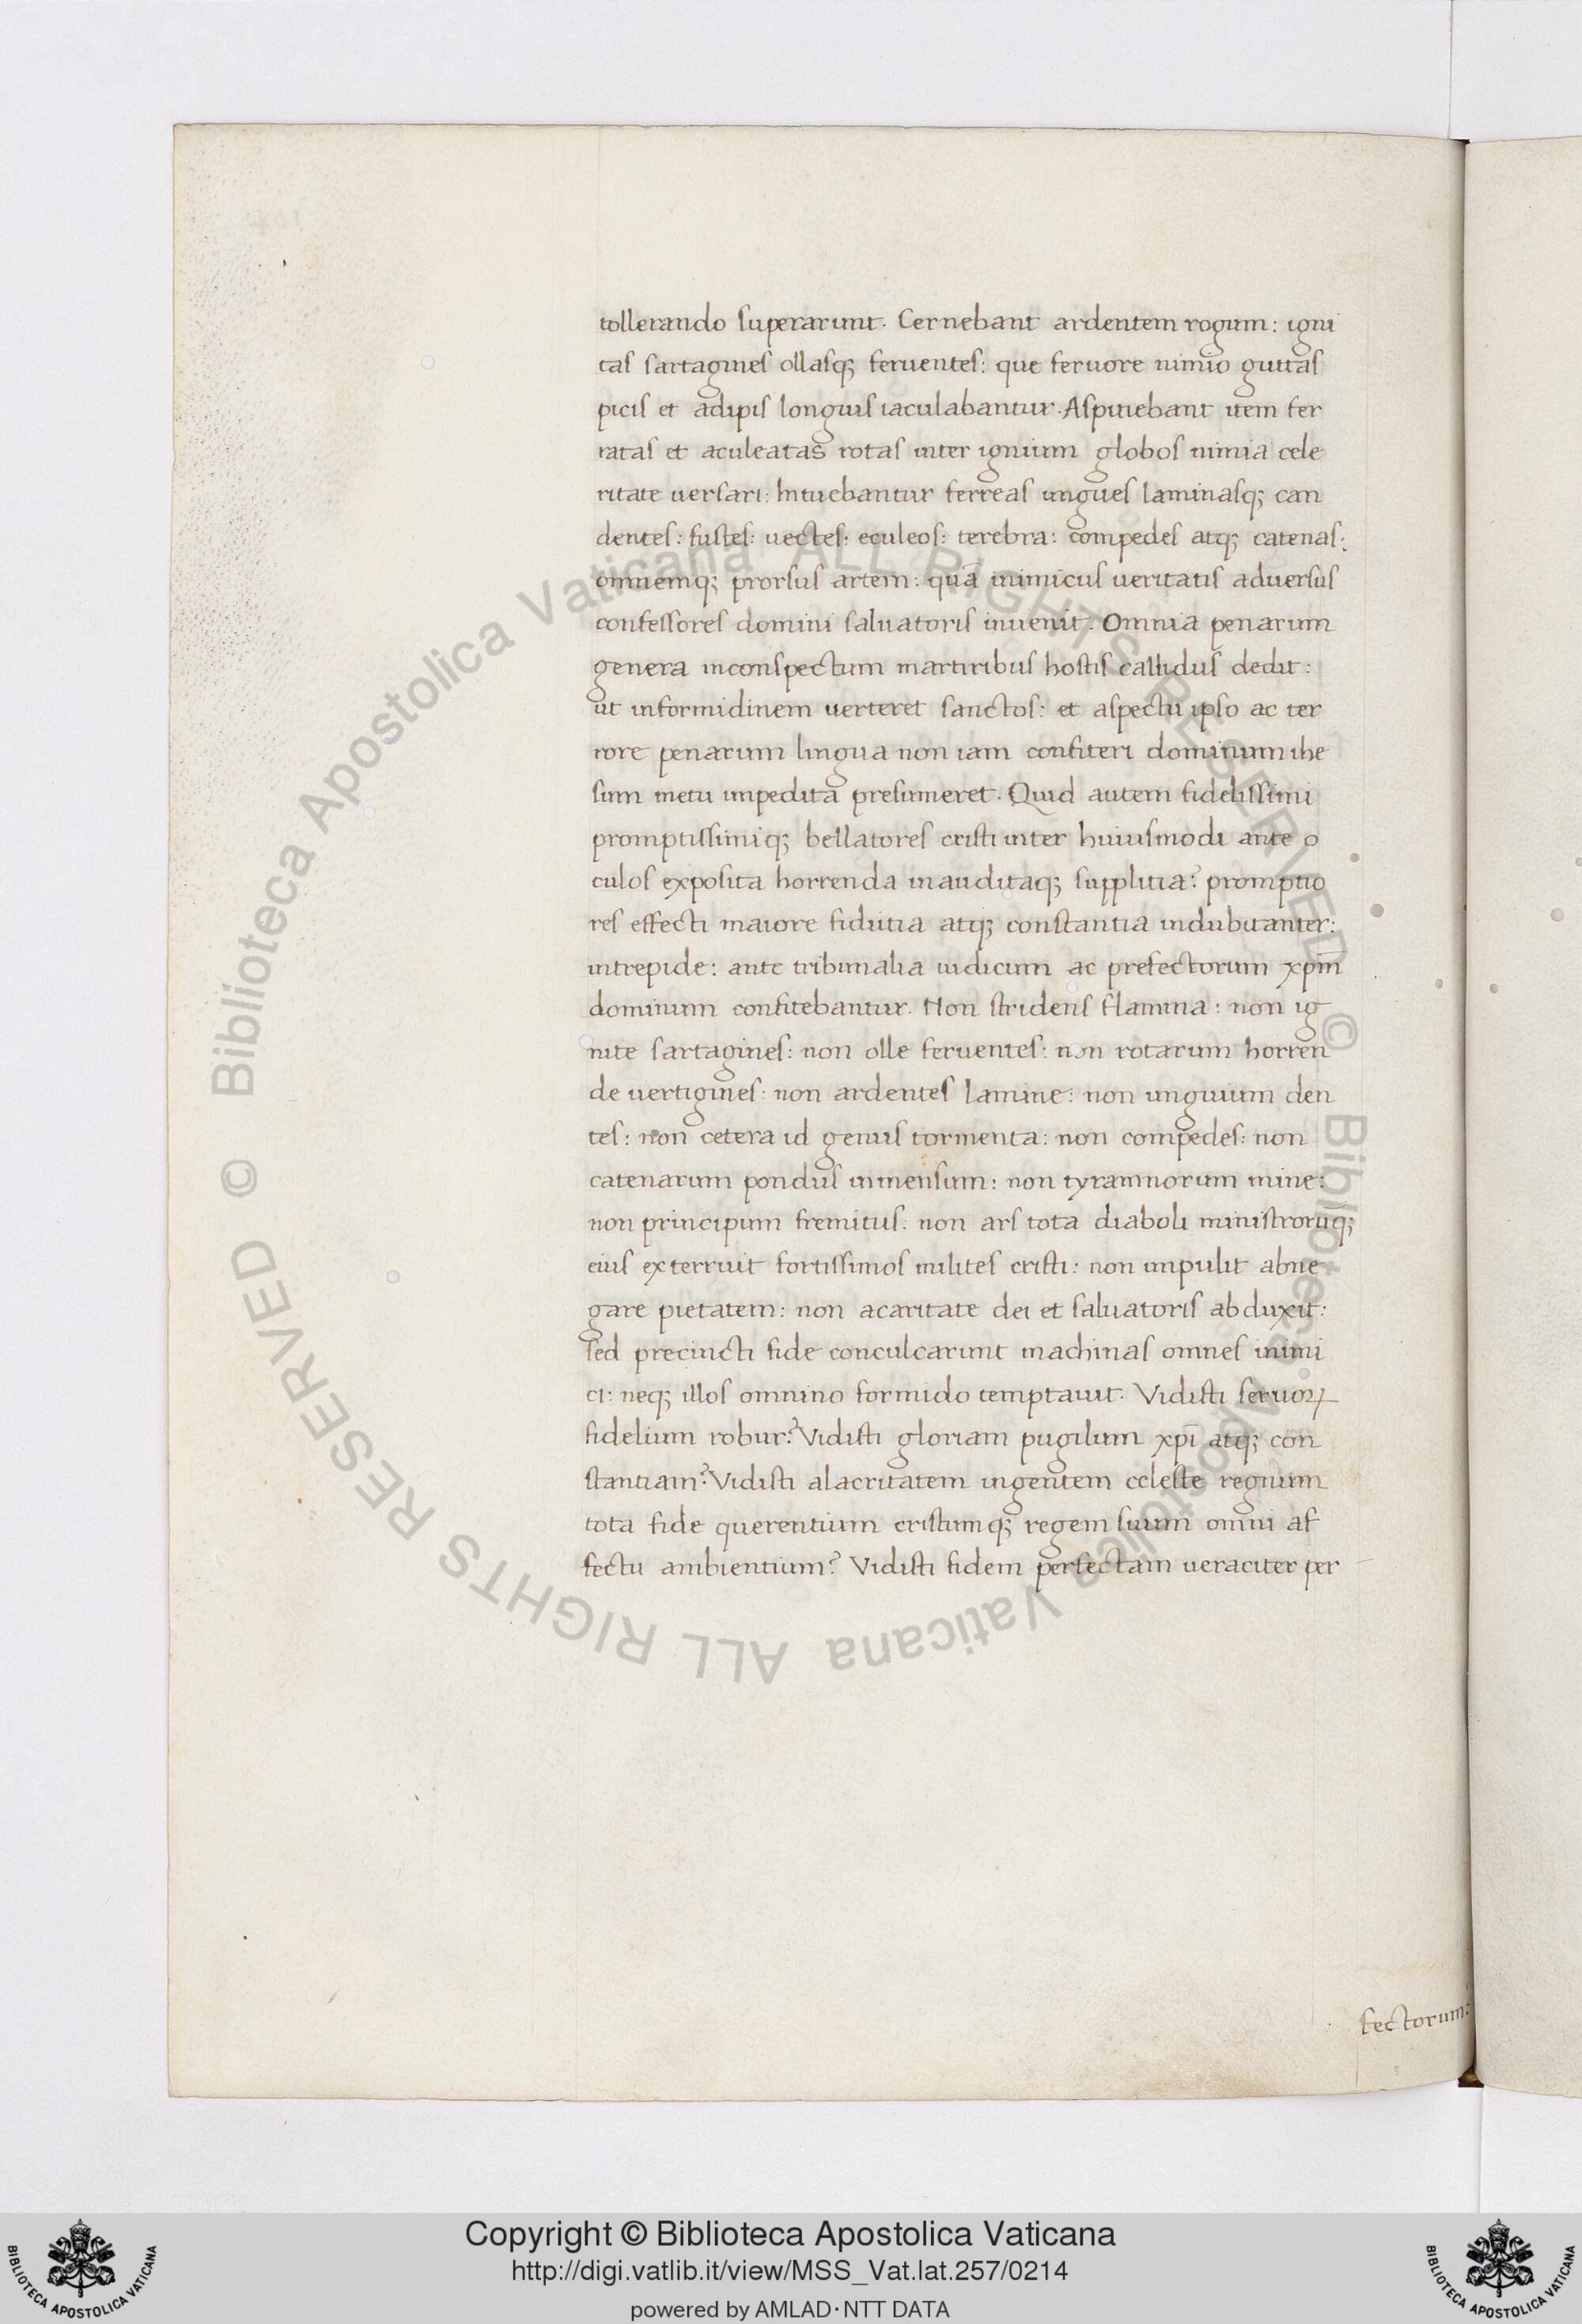 tollerando superarunt. Cernebant ardentem rogum: igni
tas sartagines ollasq; feruentes: que feruore nimio guttas
picis et adipis longius iaculabantur. Aspitiebant item fer
ratas et aculeatas rotas inter ignium globos nimia cele
ritate uersari: Intuebantur ferreas ungues laminasq; can
dentes: fustes: uectes: eculeos: terebra: compedes atq; catenas:
omnemq; prorsus artem: quā inimicus ueritatis aduersus
confessores domini saluatoris inuenit. Omnia penarum
genera inconspectum martiribus hostis callidus dedit:
ut informidinem uerteret sanctos: et aspectu ipso ac ter
rore penarum lingua non iam confiteri dominum ihe
sum metu impedita presumeret. Quid autem fidelissimi
promptissimiq; bellatores cristi inter huiusmodi ante o
culos exposita horrenda inauditaq; supplitia? promptio
res effecti maiore fidutia atq; constantia indubitanter:
intrepide: ante tribunalia iudicum ac prefectorum xpm̄
dominum confitebantur. Non stridens flamma: non ig
nite sartagines: non olle feruentes: non rotarum horren
de uertigines: non ardentes lamine: non unguium den
tes: non cetera id genus tormenta: non compedes: non
catenarum pondus inmensum: non tyramnorum mine:
non principum fremitus: non ars tota diaboli ministrorūq;
eius exterruit fortissimos milites cristi: non impulit abne
gare pietatem: non acaritate dei et saluatoris abduxit:
sed precincti fide conculcarunt machinas omnes inimi
ci: neq; illos omnino formido temptauit. Vidisti seruoꝝ
fidelium robur? Vidisti gloriam pugilum xpī atq; con
stantiam? Vidisti alacritatem ingentem celeste regnum
tota fide querentium cristumq; regem suum omni af
fectu ambientium? Vidisti fidem perfectam ueraciter per
fectorum:
© Biblioteca Apostolica Vaticana ALL RIGHTS RESERVED © Biblioteca Apostolica Vaticana ALL RIGHTS RESERVED
Copyright © Biblioteca Apostolica Vaticana
http://digi.vatlib.it/view/MSS_Vat.lat.257/0214
powered by AMLAD·NTT DATA
BIBLIOTECA APOSTOLICA VATICANA
BIBLIOTECA APOSTOLICA VATICANA